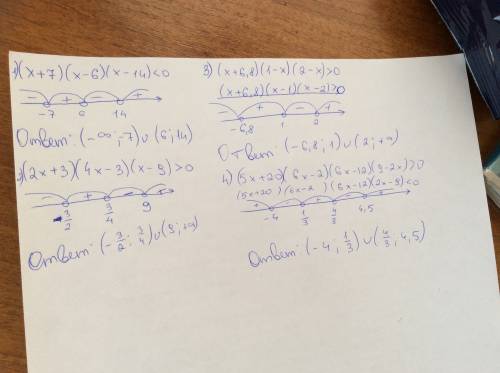 1) (x+7)(x-6)(x-14)<0
- + - +
-7 6 14
Ответ: (-∞; -7) ∪ (6; 14)
2) (2x+3)(4x-3)(x-9)>0
- + - +
-3/2 3/4 9
Ответ: (-3/2; 3/4) ∪ (9; +∞)
3) (x+6,8)(1-x)(2-x)>0
(x+6,8)(x-1)(x-2)>0
- + - +
-6,8 1 2
Ответ: (-6,8; 1) ∪ (2; +∞)
4) (5x+20)(6x-2)(6x-12)(9-2x)>0
(5x+20)(6x-2)(6x-12)(2x-9)<0
+ - + - +
-4 1/3 4/3 4,5
Ответ: (-4; 1/3) ∪ (4/3; 4,5)